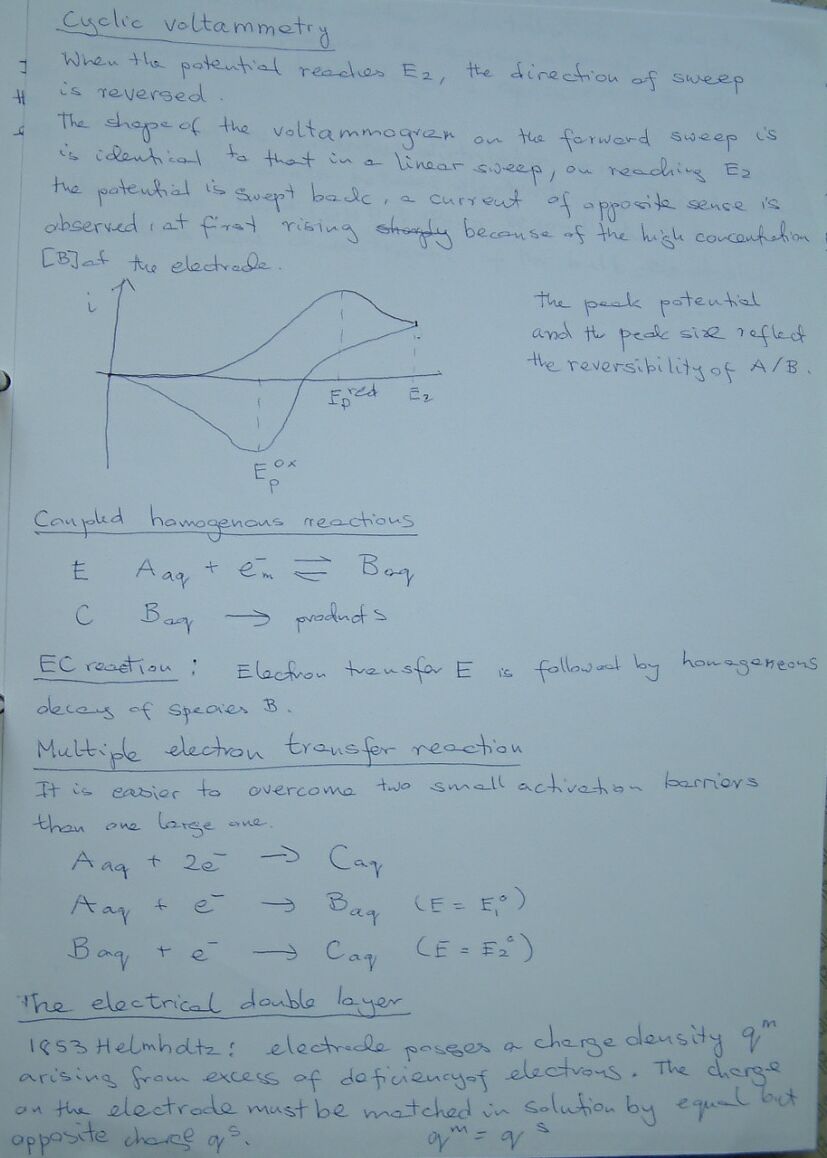 Cyclic voltammetry
When the potential reaches E₂, the direction of sweep
is reversed.
The shape of the voltammogram on the forward sweep is
is identical to that in a linear sweep, on reaching E₂
the potential is swept back, a current of opposite sense is
observed, at first rising sharply because of the high concentration
[B] at the electrode.
i
the peak potential
and the peak size reflect
the reversibility of A/B.
Eₚ^red E₂
Eₚ^ox
Coupled homogenous reactions
E A aq + e⁻m ⇌ B aq
C B aq → products
EC reaction : Electron transfer E is followed by homogeneous
decay of species B.
Multiple electron transfer reaction
It is easier to overcome two small activation barriers
than one large one.
A aq + 2e⁻ → C aq
A aq + e⁻ → B aq (E = E₁°)
B aq + e⁻ → C aq (E = E₂°)
The electrical double layer
1853 Helmholtz : electrode posses a charge density q^m
arising from excess of deficiency of electrons. The charge
on the electrode must be matched in solution by equal but
opposite charge q^s. q^m = q^s